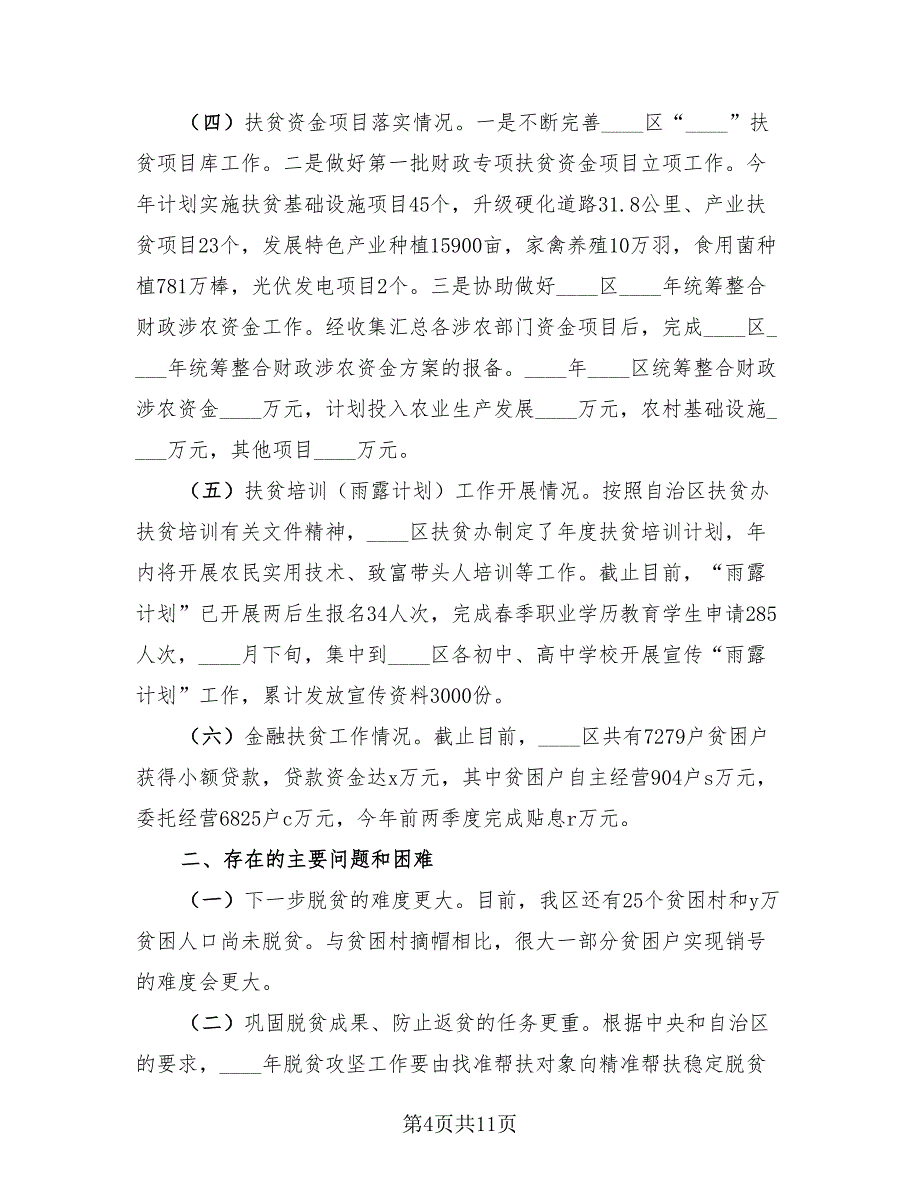 （四）扶贫资金项目落实情况。一是不断完善____区“____”扶
贫项目库工作。二是做好第一批财政专项扶贫资金项目立项工作。今
年计划实施扶贫基础设施项目45个，升级硬化道路31.8公里、产业扶
贫项目23个，发展特色产业种植15900亩，家禽养殖10万羽，食用菌种
植781万棒，光伏发电项目2个。三是协助做好____区____年统筹整合
财政涉农资金工作。经收集汇总各涉农部门资金项目后，完成____区_
___年统筹整合财政涉农资金方案的报备。____年____区统筹整合财政
涉农资金____万元，计划投入农业生产发展____万元，农村基础设施_
___万元，其他项目____万元。
（五）扶贫培训（雨露计划）工作开展情况。按照自治区扶贫办
扶贫培训有关文件精神，____区扶贫办制定了年度扶贫培训计划，年
内将开展农民实用技术、致富带头人培训等工作。截止目前，“雨露
计划”已开展两后生报名34人次，完成春季职业学历教育学生申请285
人次，____月下旬，集中到____区各初中、高中学校开展宣传“雨露
计划”工作，累计发放宣传资料3000份。
（六）金融扶贫工作情况。截止目前，____区共有7279户贫困户
获得小额贷款，贷款资金达x万元，其中贫困户自主经营904户s万元，
委托经营6825户c万元，今年前两季度完成贴息r万元。
二、存在的主要问题和困难
（一）下一步脱贫的难度更大。目前，我区还有25个贫困村和y万
贫困人口尚未脱贫。与贫困村摘帽相比，很大一部分贫困户实现销号
的难度会更大。
（二）巩固脱贫成果、防止返贫的任务更重。根据中央和自治区
的要求，____年脱贫攻坚工作要由找准帮扶对象向精准帮扶稳定脱贫
第4页共11页